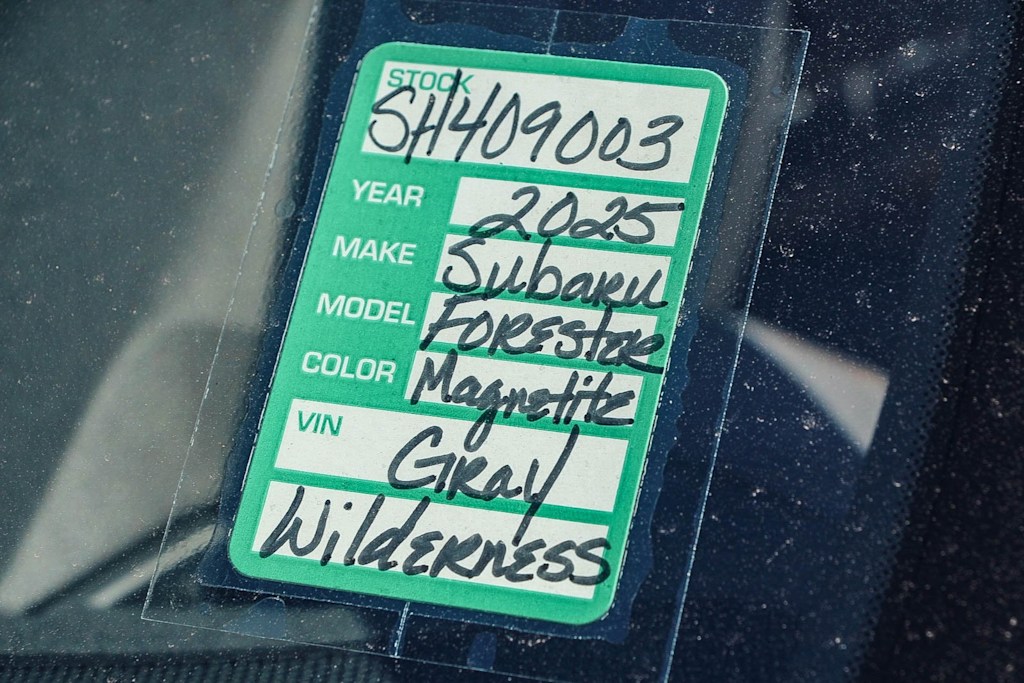 STOCK
SH409003
YEAR 2025
MAKE Subaru
MODEL Forester
COLOR Magnetite
VIN
Gray
Wilderness